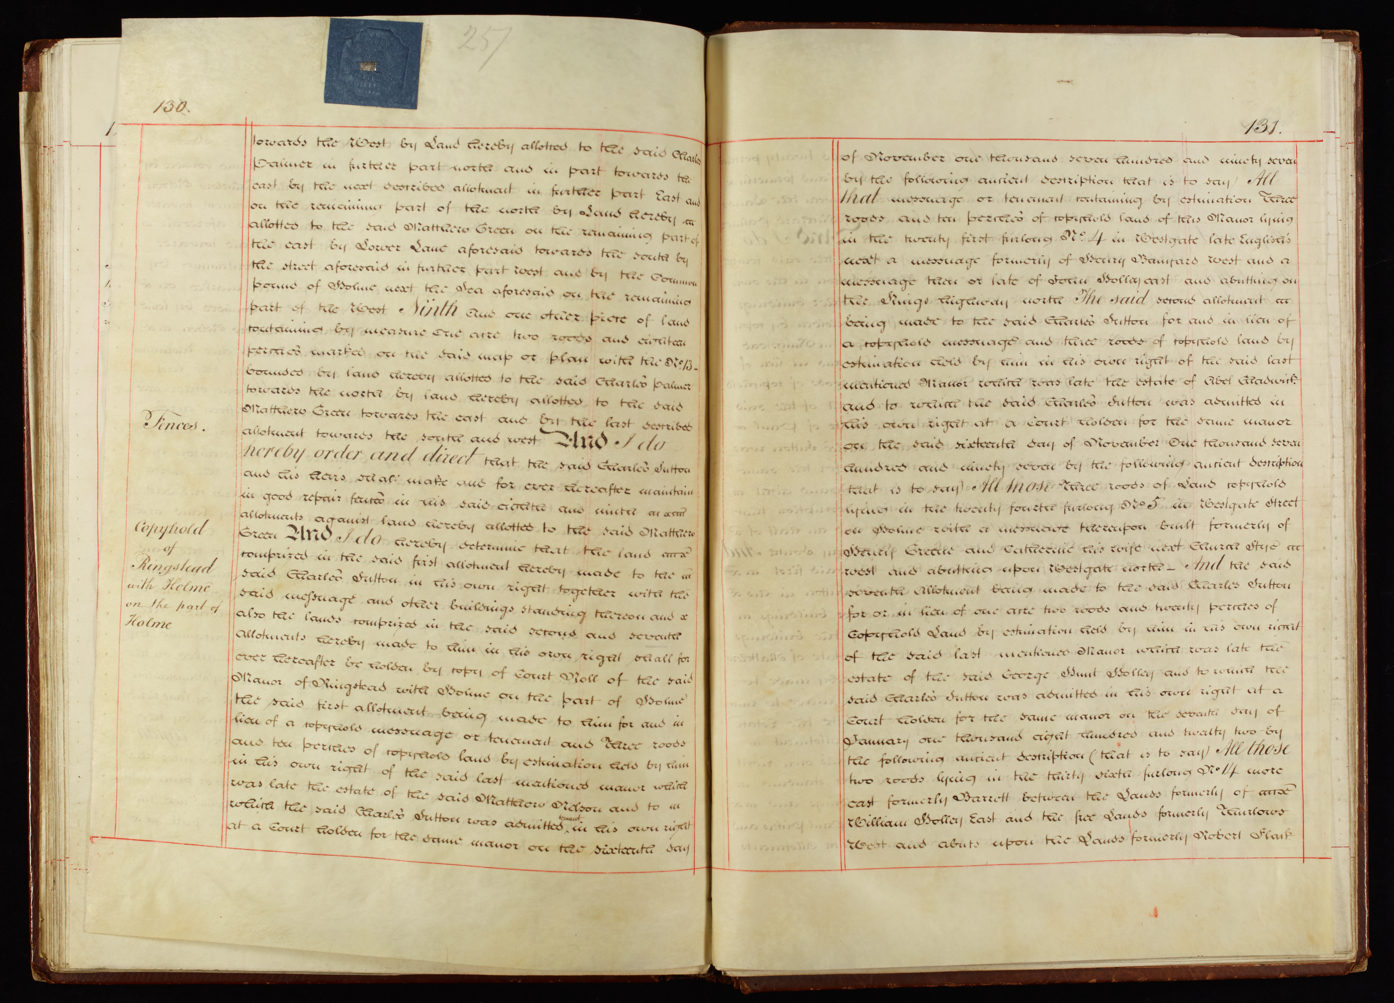 257
130.
towards the West by Land hereby allotted to the said Charles
Palmer in further part north and in part towards the
east by the next described allotment in further part East and
on the remaining part of the north by Land hereby
allotted to the said Matthew Green on the remaining part of
the east by Lower Lane aforesaid towards the south by
the street aforesaid in further part West and by the Common
pound of Holme next the Sea aforesaid on the remaining
part of the West Ninth And one other piece of land
containing by measure One acre two roods and eighteen
perches marked on the said map or plan with the No. 13
bounded by land hereby allotted to the said Charles Palmer
towards the north by land hereby allotted to the said
Matthew Green towards the east and by the last described
allotment towards the south and west And I do
hereby order and direct that the said Charles Sutton
and his heirs shall make and for ever hereafter maintain
in good repair fences in his said eighth and ninth
allotments against land hereby allotted to the said Matthew
Green And I do hereby determine that the land
comprized in the said first allotment hereby made to the
said Charles Sutton in his own right together with the
said messuage and other buildings standing thereon and
also the lands comprized in the said second and seventh
allotments hereby made to him in his own right shall for
ever hereafter be holden by copy of Court Roll of the said
Manor of Ringstead with Holme on the part of Holme
the said first allotment being made to him for and in
lieu of a copyhold messuage or tenement and Three roods
and ten perches of copyhold land by estimation held by him
in his own right of the said last mentioned manor which
was late the estate of the said Matthew Nelson and to
which the said Charles Sutton was admitted in his own right
at a Court holden for the same manor on the sixteenth day
Fences.
Copyhold
of
Ringstead
with Holme
on the part of
Holme
131.
of November one thousand seven hundred and ninety seven
by the following ancient description that is to say All
that messuage or tenement containing by estimation Three
roods and ten perches of copyhold land of this Manor lying
in the twenty first furlong No. 4 in Westgate late English's
next a messuage formerly of Henry Banyard West and a
messuage then or late of John Holley east and abutting on
the Kings highway north The said second allotment
being made to the said Charles Sutton for and in lieu of
a copyhold messuage and three roods of copyhold land by
estimation held by him in his own right of the said last
mentioned Manor which was late the estate of Abel Chadwick
and to which the said Charles Sutton was admitted in
his own right at a Court holden for the same manor
on the said sixteenth day of November One thousand seven
hundred and ninety seven by the following ancient description
that is to say) All those Three roods of Land copyhold
lying in the twenty fourth furlong No. 5 in Westgate Street
in Holme with a messuage thereupon built formerly of
Henry Greene and Catherine his wife next Church Stye
west and abutting upon Westgate north - And the said
seventh Allotment being made to the said Charles Sutton
for or in lieu of one acre two roods and twenty perches of
Copyhold Land by estimation held by him in his own right
of the said last mentioned Manor which was late the
estate of the said George Hunt Holley and to which the
said Charles Sutton was admitted in his own right at a
Court holden for the same manor on the seventh day of
January one thousand eight hundred and twenty two by
the following ancient description (that is to say) All those
two roods lying in the thirty sixth furlong No. 14 more
east formerly Barrett between the Lands formerly of
William Holley East and the free Lands formerly Thurlows
West and abuts upon the Lands formerly Robert Flask